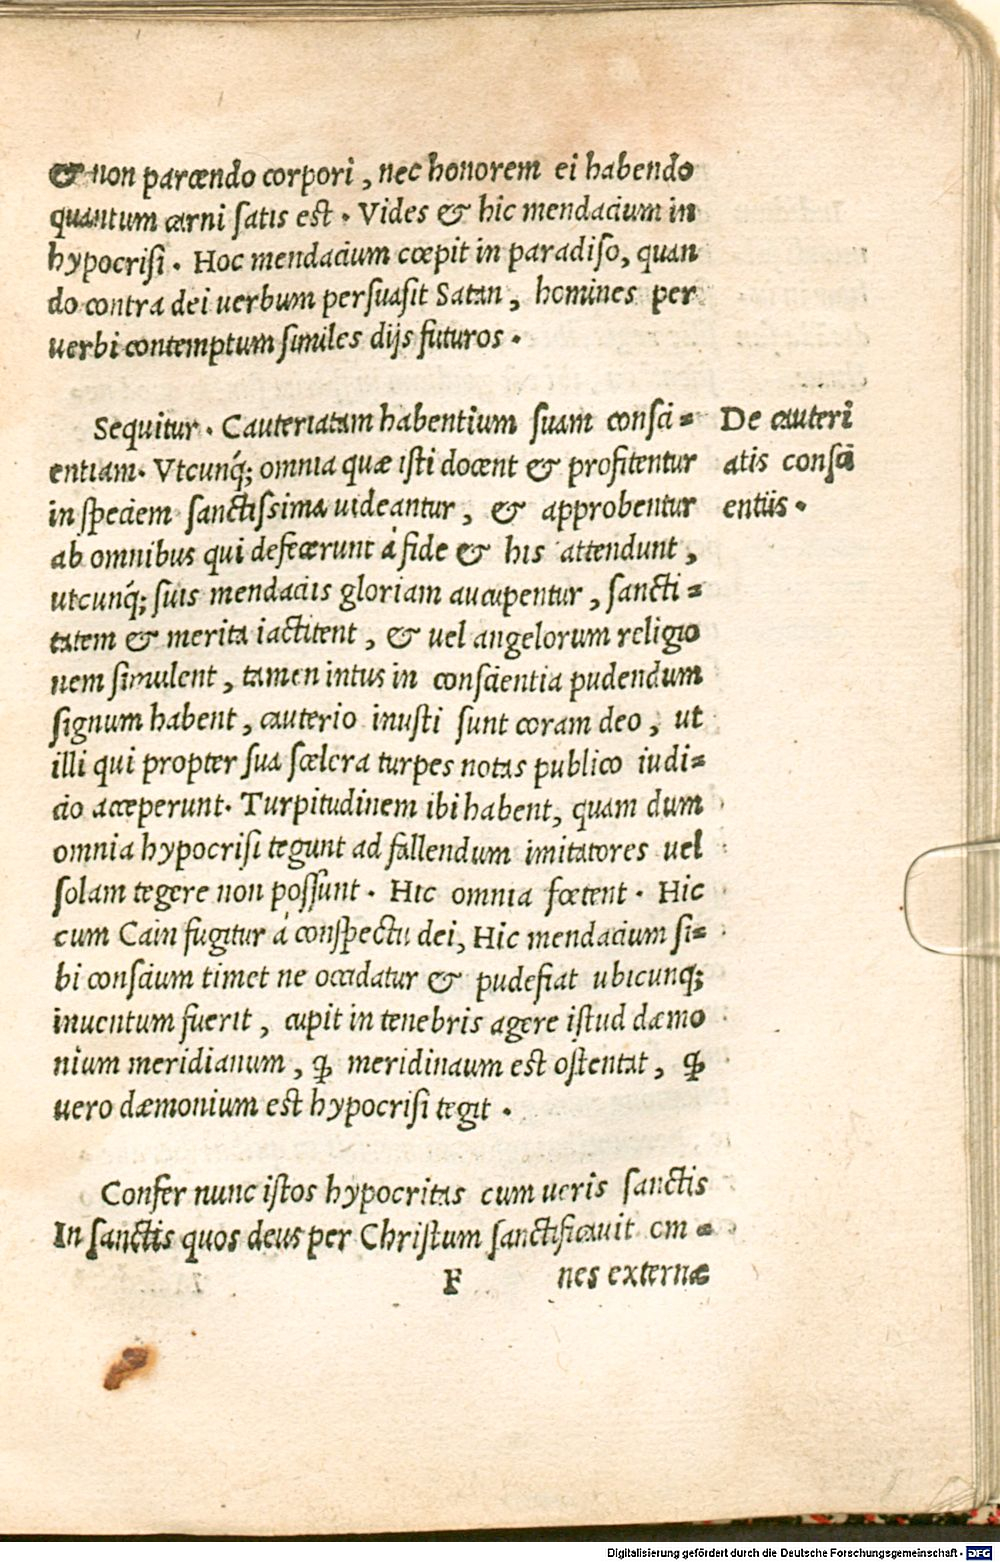 & non parcendo corpori, nec honorem ei habendo
quantum carni satis est. Vides & hic mendacium in
hypocrisi. Hoc mendacium cœpit in paradiso, quan
do contra dei uerbum persuasit Satan, homines per
uerbi contemptum similes dijs futuros.
Sequitur. Cauteriatam habentium suam consci=
entiam. Vtcunq; omnia quæ isti docent & profitentur
in speciem sanctissima uideantur, & approbentur
ab omnibus qui defecerunt à fide & his attendunt,
utcunq; suis mendaciis gloriam aucupentur, sancti=
tatem & merita iactitent, & uel angelorum religio
nem simulent, tamen intus in conscientia pudendum
signum habent, cauterio inusti sunt coram deo, ut
illi qui propter sua scelera turpes notas publico iudi=
cio acceperunt. Turpitudinem ibi habent, quam dum
omnia hypocrisi tegunt ad fallendum imitatores uel
solam tegere non possunt. Hic omnia fœtent. Hic
cum Cain fugitur à conspectu dei, Hic mendacium si=
bi conscium timet ne occidatur & pudefiat ubicunq;
inuentum fuerit, cupit in tenebris agere istud dæmo
nium meridianum, ꝙ meridinaum est ostentat, ꝙ
uero dæmonium est hypocrisi tegit.
Confer nunc istos hypocritas cum ueris sanctis
In sanctis quos deus per Christum sanctificauit om=
F nes externæ
De cauteri
atis consci
entiis.
Digitalisierung gefördert durch die Deutsche Forschungsgemeinschaft - DFG